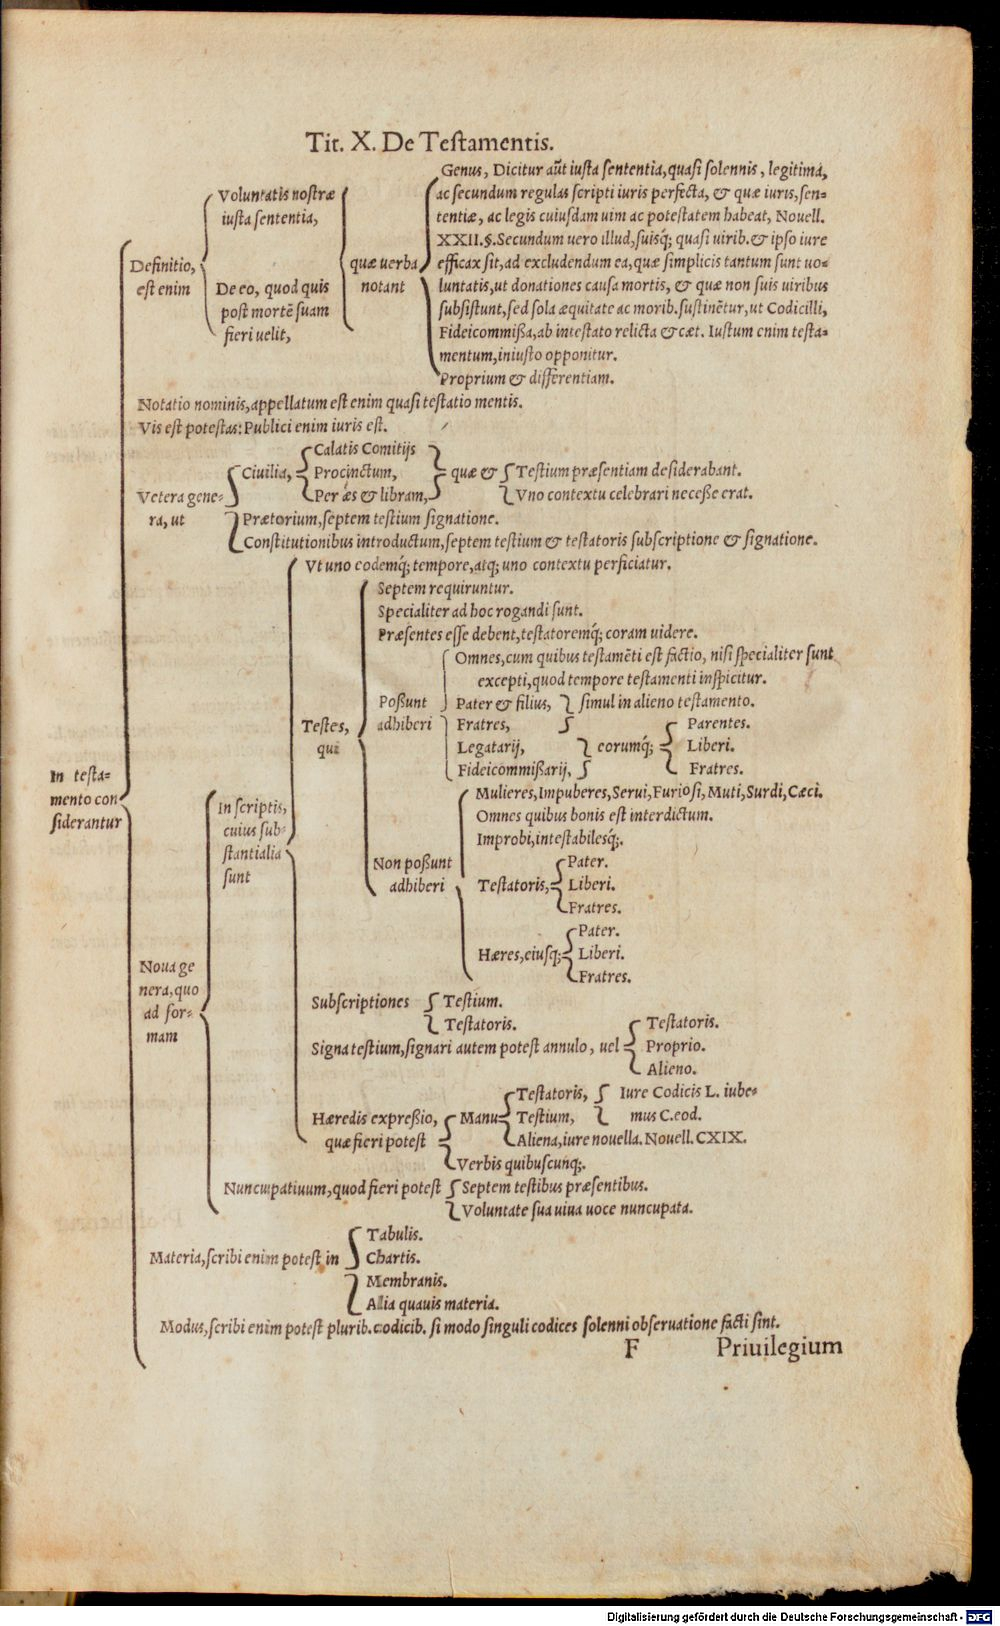 Tit. X. De Testamentis.
Genus, Dicitur aūt iusta sententia, quasi solennis, legitima,
ac secundum regulas scripti iuris perfecta, & quæ iuris, sen-
tentiæ, ac legis cuiusdam uim ac potestatem habeat, Nouell.
XXII.§. Secundum uero illud, suisq́; quasi uirib. & ipso iure
efficax sit, ad excludendum ea, quæ simplicis tantum sunt uo-
luntatis, ut donationes causa mortis, & quæ non suis uiribus
subsistunt, sed sola æquitate ac morib. sustinētur, ut Codicilli,
Fideicommissa, ab intestato relicta & cæt. Iustum enim testa-
mentum, iniusto opponitur.
Proprium & differentiam.
Voluntatis nostræ
iusta sententia,
quæ uerba
notant
Definitio,
est enim
De eo, quod quis
post mortē suam
fieri uelit,
Notatio nominis, appellatum est enim quasi testatio mentis.
Vis est potestas: Publici enim iuris est.
Calatis Comitijs
Ciuilia, Procinctum, quæ & Testium præsentiam desiderabant.
Per æs & libram, Vno contextu celebrari necesse erat.
Vetera gene-
ra, ut
Prætorium, septem testium signatione.
Constitutionibus introductum, septem testium & testatoris subscriptione & signatione.
Vt uno eodemq́; tempore, atq; uno contextu perficiatur.
Septem requiruntur.
Specialiter ad hoc rogandi sunt.
Præsentes esse debent, testatoremq́; coram uidere.
Omnes, cum quibus testamēti est factio, nisi specialiter sunt
excepti, quod tempore testamenti inspicitur.
Possunt
adhiberi
Pater & filius, simul in alieno testamento.
Fratres, Parentes.
Legatarij, eorumq́; Liberi.
Fideicommissarij, Fratres.
Testes,
qui
In testa-
mento con
siderantur
Mulieres, Impuberes, Serui, Furiosi, Muti, Surdi, Cæci.
Omnes quibus bonis est interdictum.
Improbi, intestabilesq́;.
In scriptis,
cuius sub-
stantialia
sunt
Non possunt
adhiberi
Pater.
Testatoris, Liberi.
Fratres.
Pater.
Hæres, eiusq; Liberi.
Fratres.
Noua ge
nera, quo
ad for-
mam
Subscriptiones Testium.
Testatoris.
Testatoris.
Signa testium, signari autem potest annulo, uel Proprio.
Alieno.
Testatoris, Iure Codicis L. iube-
Hæredis expressio, Manu Testium, mus C. eod.
quæ fieri potest Aliena, iure nouella. Nouell. CXIX.
Verbis quibuscunq;.
Nuncupatiuum, quod fieri potest Septem testibus præsentibus.
Voluntate sua uiua uoce nuncupata.
Tabulis.
Materia, scribi enim potest in Chartis.
Membranis.
Alia quauis materia.
Modus, scribi enim potest plurib. codicib. si modo singuli codices solenni obseruatione facti sint.
F Priuilegium
Digitalisierung gefördert durch die Deutsche Forschungsgemeinschaft - DFG